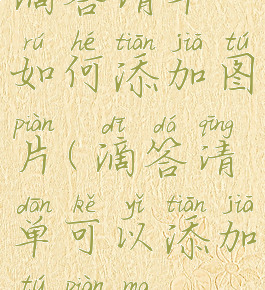 滴答清单
rú hé tiān jiā tú
如何添加图
piàn dī dá qīng
片(滴答清
dān kě yǐ tiān jiā
单可以添加
tú piàn ma